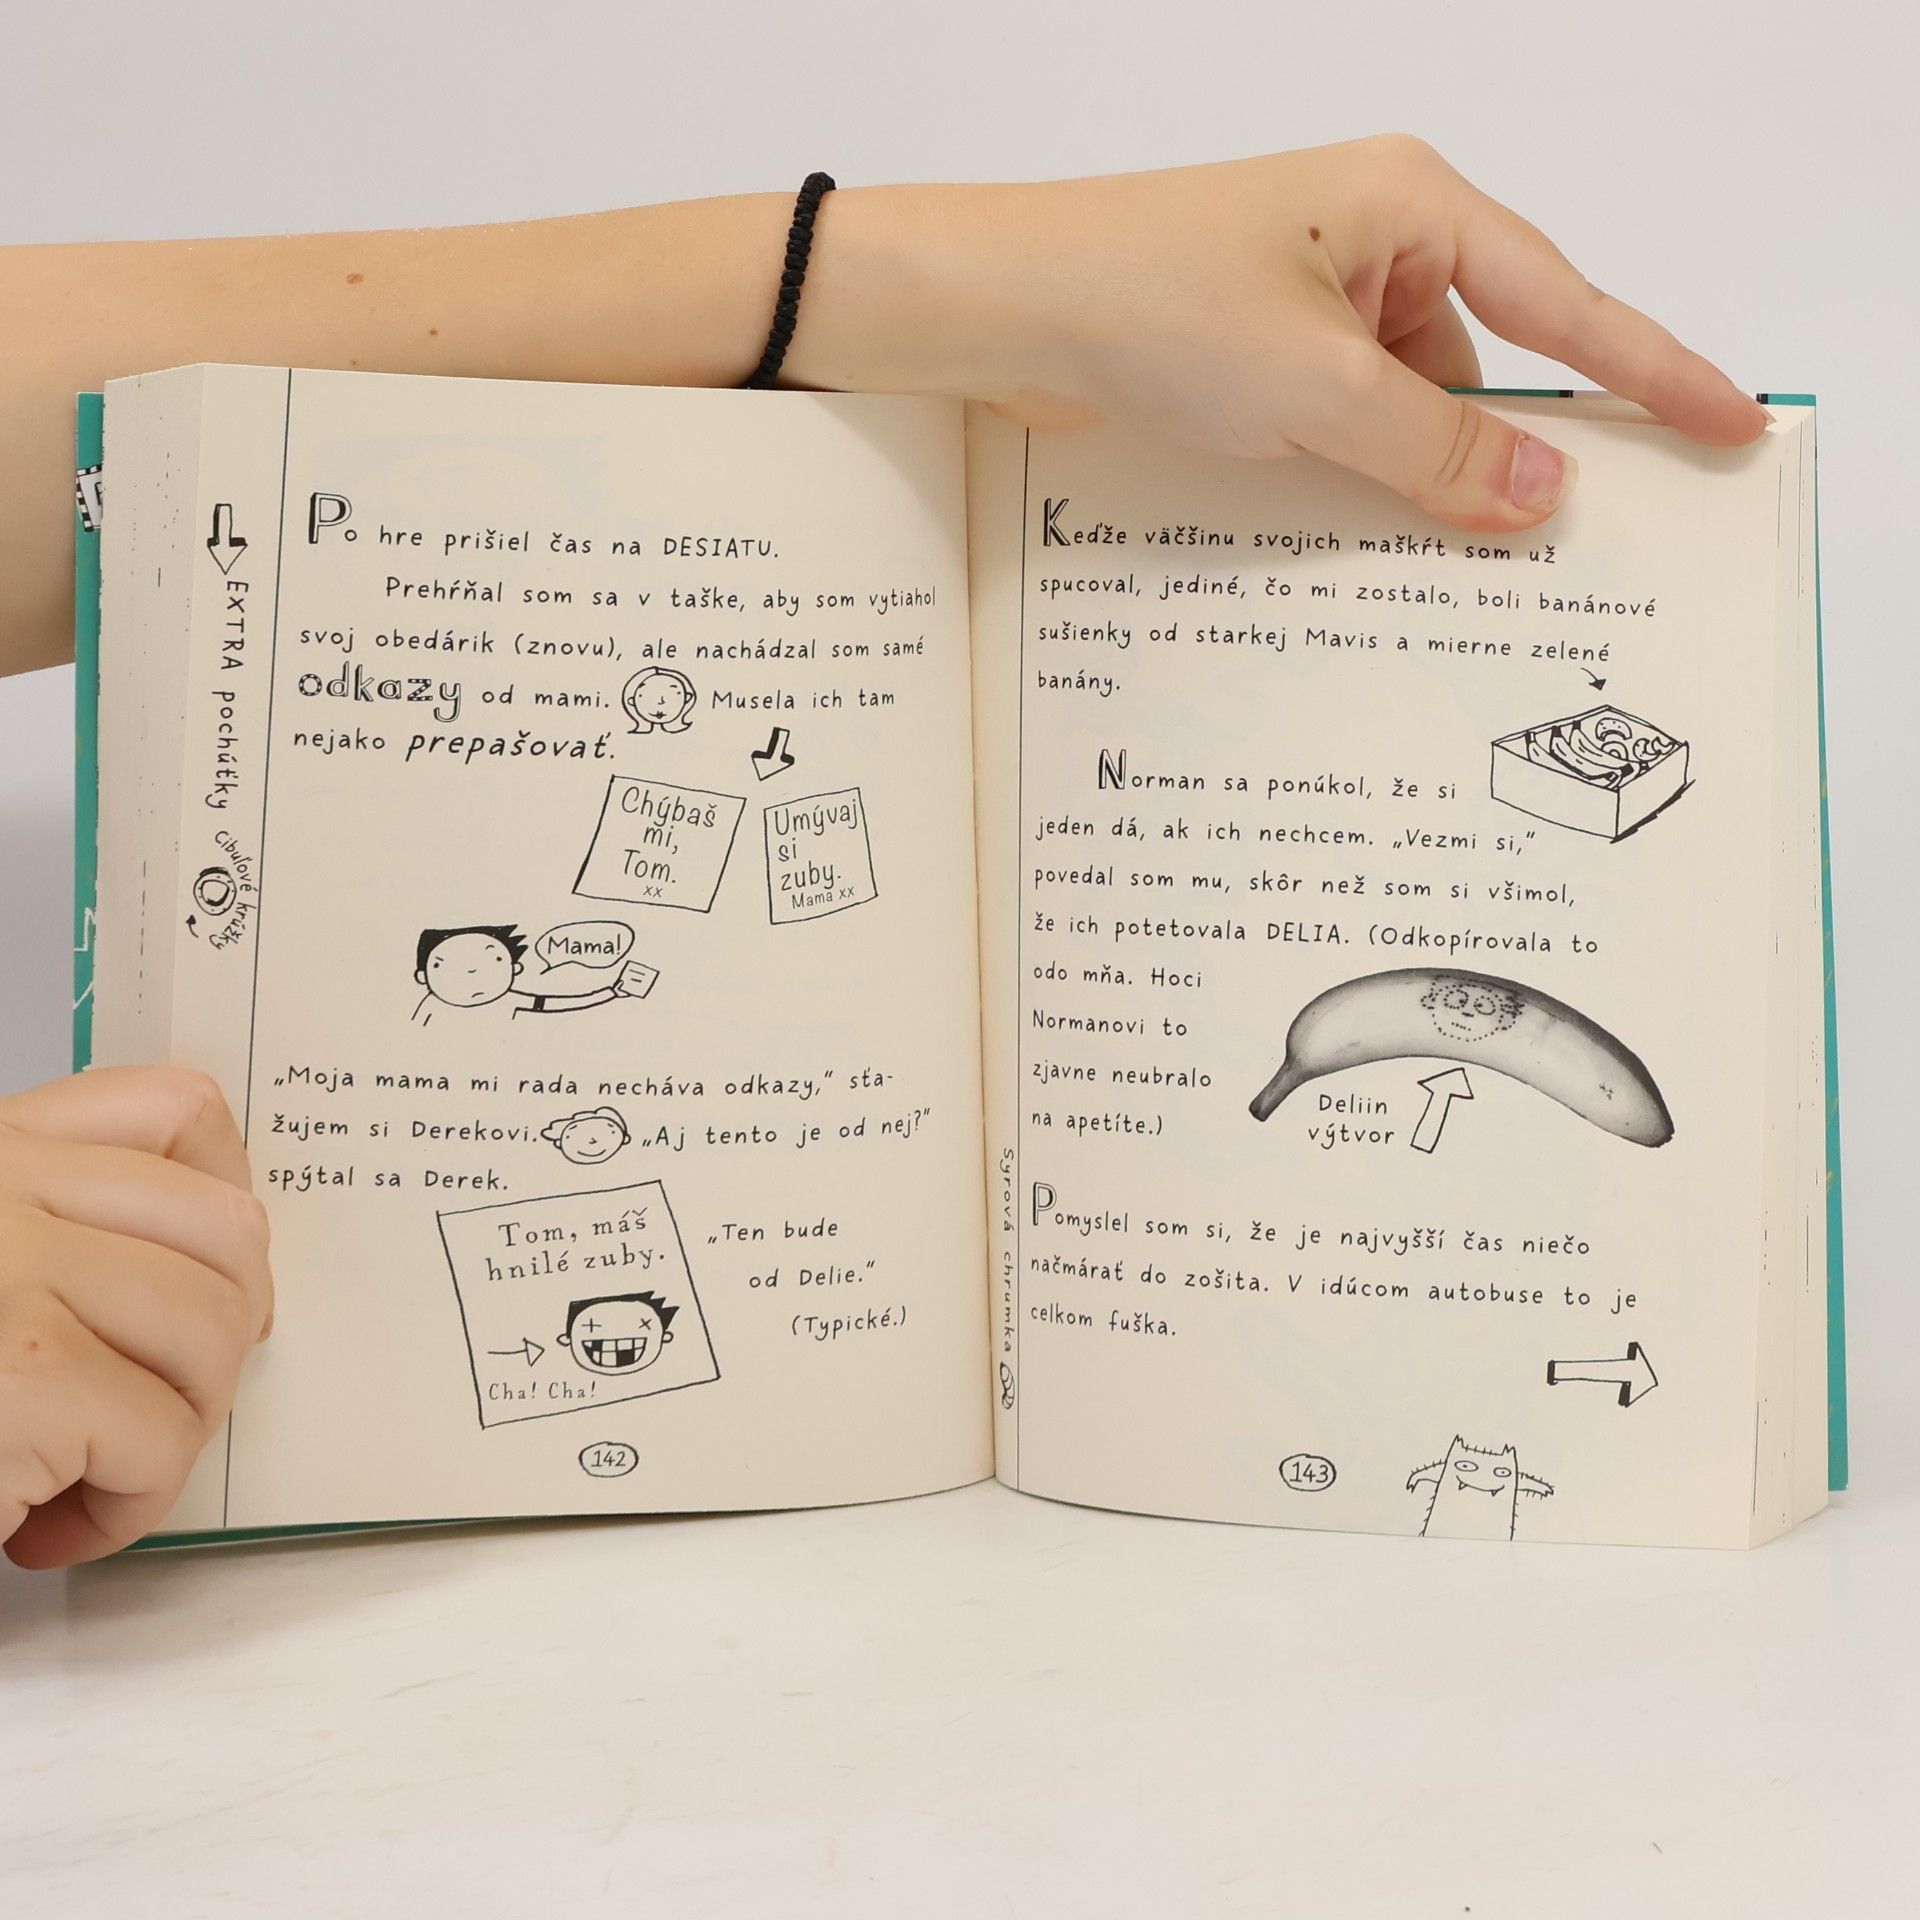 EXTRA pochúťky
cibuľové krúžky
Po hre prišiel čas na DESIATU.
Prehŕňal som sa v taške, aby som vytiahol
svoj obedárik (znovu), ale nachádzal som samé
odkazy od mami. Musela ich tam
nejako prepašovať.
Chýbaš
mi,
Tom.
xx
Umývaj
si
zuby.
Mama xx
Mama!
„Moja mama mi rada necháva odkazy,“ sťa-
žujem si Derekovi. „Aj tento je od nej?“
spýtal sa Derek.
Tom, máš
hnilé zuby.
Cha! Cha!
„Ten bude
od Delie.“
(Typické.)
142
Keďže väčšinu svojich maškŕt som už
spucoval, jediné, čo mi zostalo, boli banánové
sušienky od starkej Mavis a mierne zelené
banány.
Norman sa ponúkol, že si
jeden dá, ak ich nechcem. „Vezmi si,“
povedal som mu, skôr než som si všimol,
že ich potetovala DELIA. (Odkopírovala to
odo mňa. Hoci
Normanovi to
zjavne neubralo
na apetíte.)
Deliin
výtvor
Syrová chrumka
Pomyslel som si, že je najvyšší čas niečo
načmárať do zošita. V idúcom autobuse to je
celkom fuška.
143